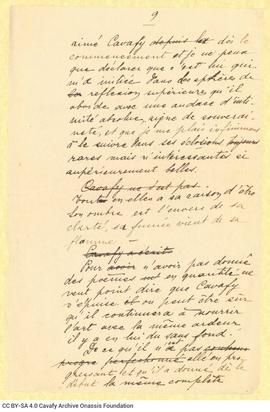 9
aimé Cavafy depuis les dès le
commencement et je ne peux
que déclarer que c'est lui qui
m'a initiée dans des sphères de
la réflexion supérieure qu'il
aborde avec une audace d'inté-
nité absolue, signe de souverai-
neté, et que je me plais infiniment
à le suivre dans ses éclosions toujours
rares mais si intéressantes si
supérieurement belles.
Cavafy ne s'est pas.
Tout en elles a sa raison d'être
son ombre est l'envers de sa
clarté, sa fumée vient de sa
flamme.
Cavafy a écrit
Pour avoir n'avoir pas donné
des poèmes en quantité ne
veut point dire que Cavafy
s'épuise et on peut être sûr
qu'il continuera à nourrir
l'art avec la même ardeur
il y a en lui du sans fond.
De ce qu'il n'a pas
progre perfectionné elle en pro-
gressant, et qu'il a donné dès le
début la même complète
CC BY-SA 4.0 Cavafy Archive Onassis Foundation